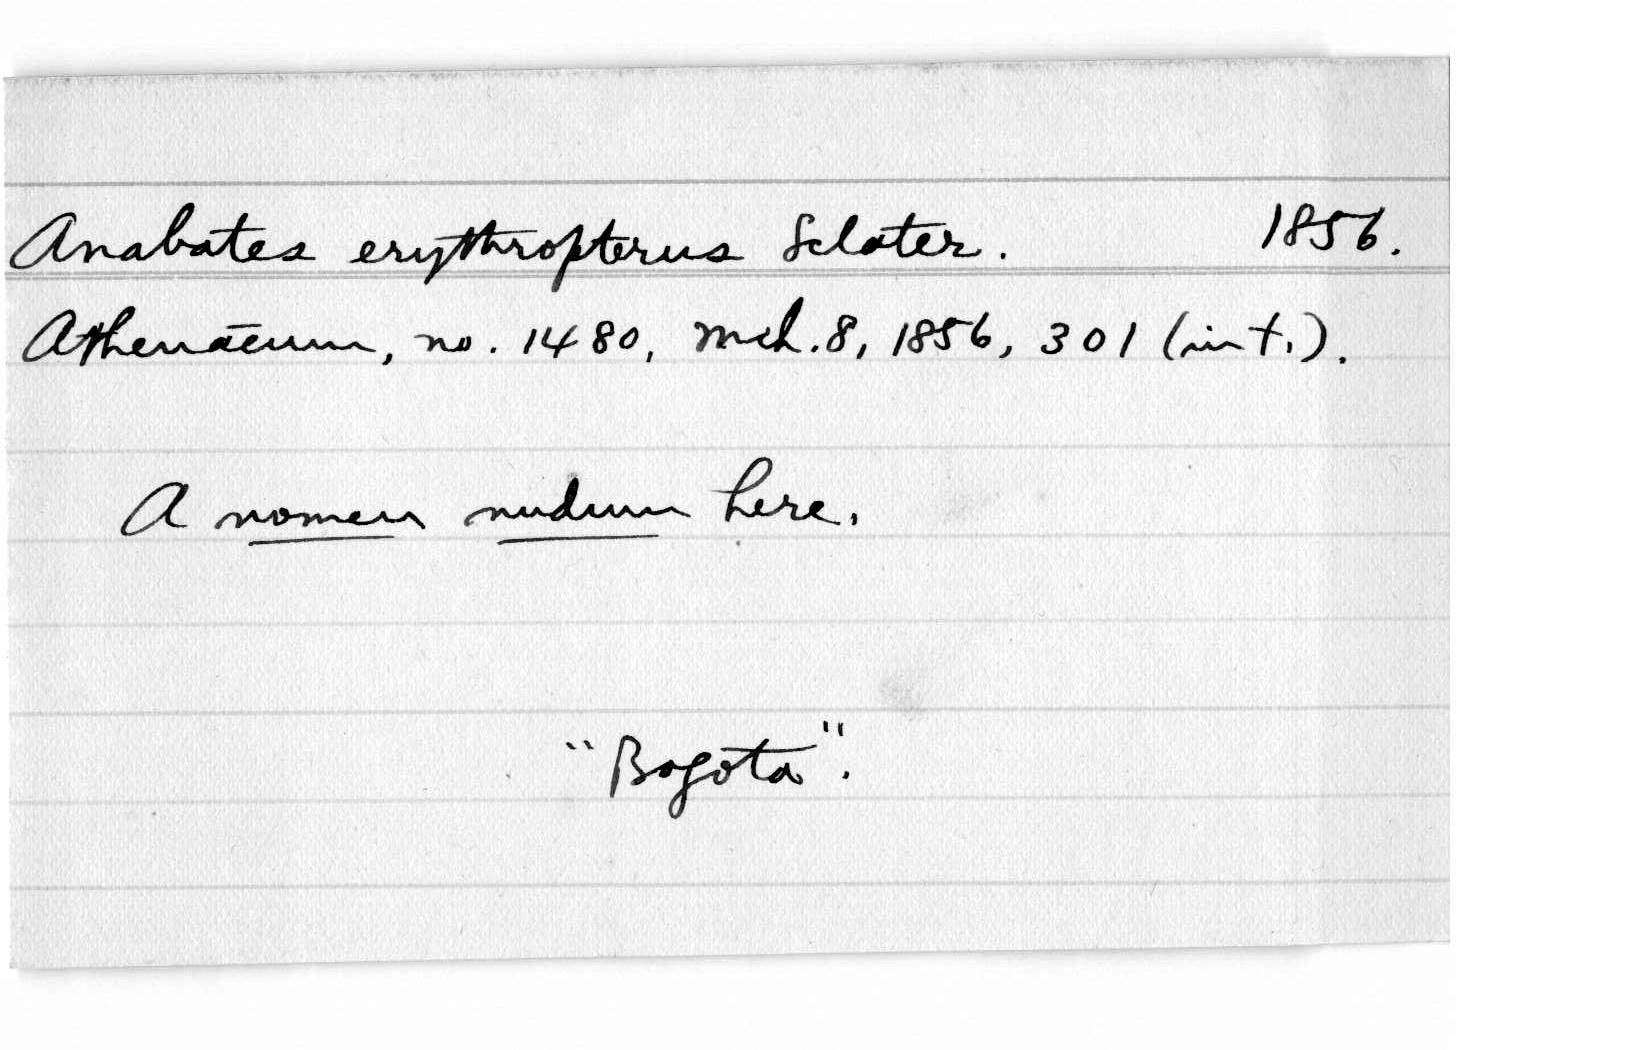 Anabates erythropterus Sclater. 1856.
Athenaeum, no. 1480, Mch. 8, 1856, 301 (in t.).
A nomen nudum here.
"Bogota".